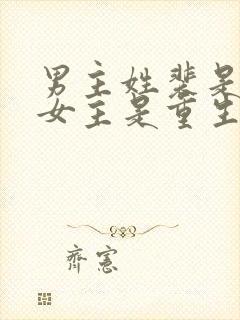 男主姓裴是
女主是重生
齊憲